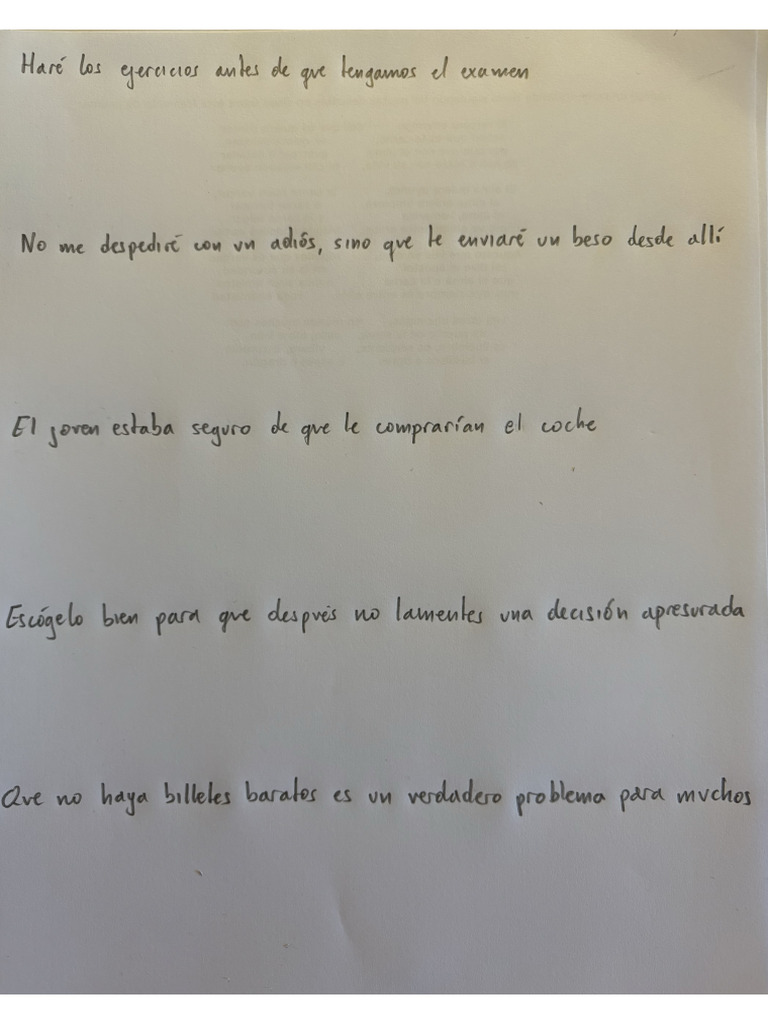 Haré los ejercicios antes de que tengamos el examen
No me despediré con un adiós, sino que te enviaré un beso desde allí
El joven estaba seguro de que le comprarían el coche
Escógelo bien para que después no lamentes una decisión apresurada
Que no haya billetes baratos es un verdadero problema para muchos